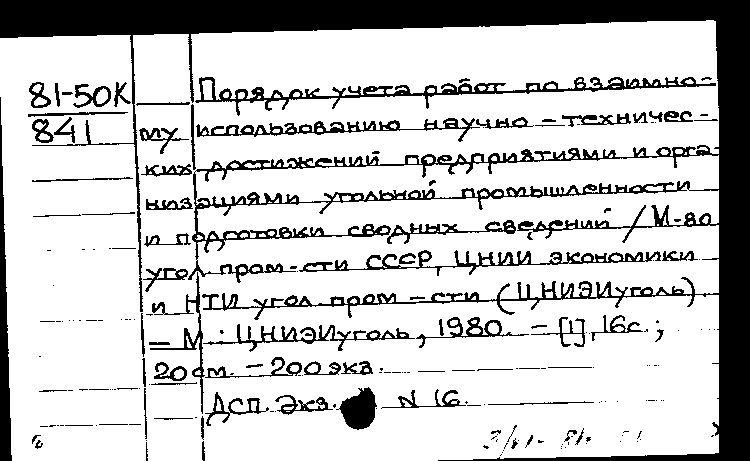 81-50К Порядок учета работ по взаимно-
841 му использованию научно-техничес-
ких достижений предприятиями и орга-
низациями угольной промышленности
и подготовки сводных сведений / М-во
угол. пром-сти СССР, ЦНИИ экономики
и НТИ угол. пром-сти (ЦНИЭИуголь).
— М.: ЦНИЭИуголь, 1980. — [1], 16с.;
20см. — 200 экз.
ДСП. Экз. N 16.